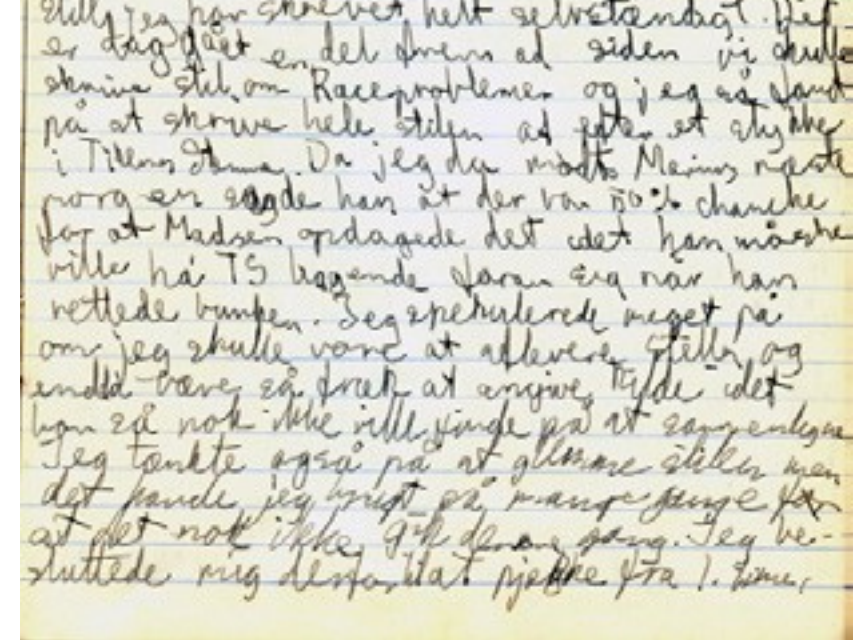 stil jeg har skrevet helt selvstændigt. Det
er dag gået en del frem ad siden vi skulle
skrive stil om Raceproblemer og jeg så fandt
på at skrive hele stilen af efter et stykke
i Tidens Stemme. Da jeg da mødte Marius næste
morgen sagde han at der var 50% chanche
for at Madsen opdagede det idet han måske
ville há TS liggende foran sig når han
rettede bunken. Jeg spekulerede meget på
om jeg skulle være at aflevere stilen og
endda være så fræk at angive kilde idet
han så nok ikke ville finde på at sammenligne
Jeg tænkte også på at glemme stilen men
det havde jeg brugt så mange gange før
at det nok ikke gik denne gang. Jeg be-
sluttede mig desfor til at pjække fra 1. time,